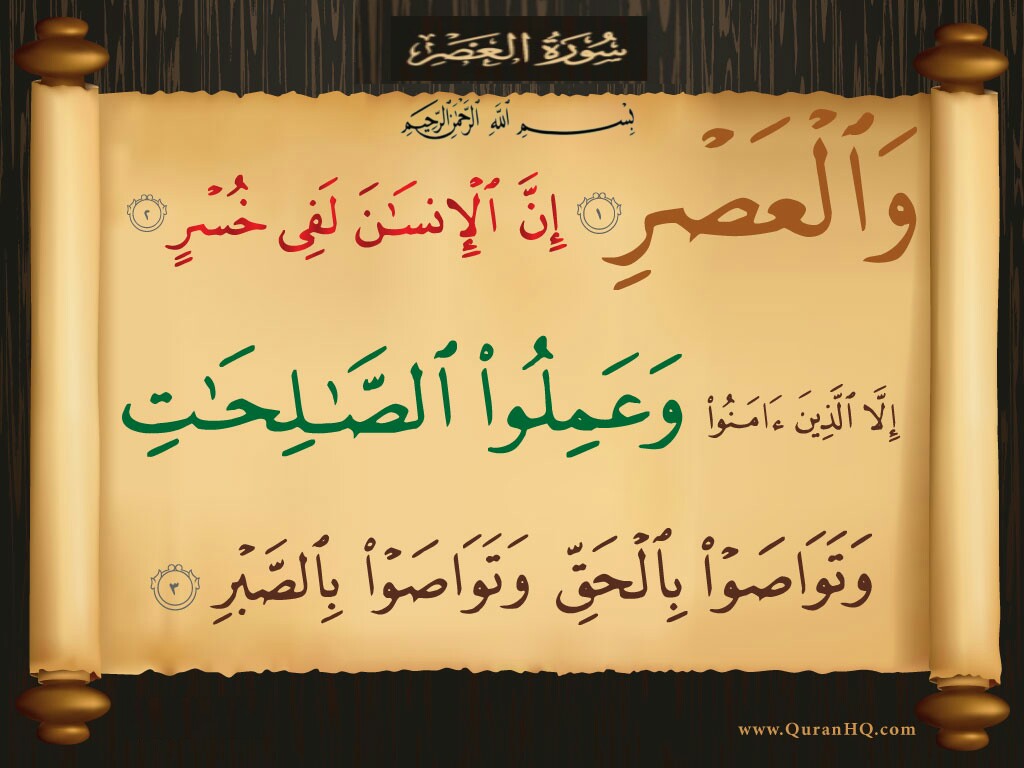 سُورَةُ العَصْرِ
بِسْمِ اللَّهِ الرَّحْمَٰنِ الرَّحِيمِ
وَٱلْعَصْرِ ١ إِنَّ ٱلْإِنسَـٰنَ لَفِى خُسْرٍ ٢
إِلَّا ٱلَّذِينَ ءَامَنُوا۟ وَعَمِلُوا۟ ٱلصَّـٰلِحَـٰتِ
وَتَوَاصَوْا۟ بِٱلْحَقِّ وَتَوَاصَوْا۟ بِٱلصَّبْرِ ٣
www.QuranHQ.com